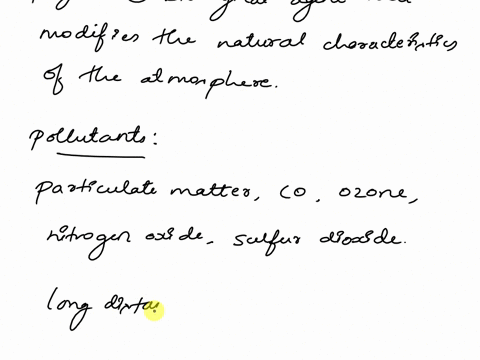 modifies the natural characteristics
of the atmosphere.
pollutants:
particulate matter, CO, ozone,
nitrogen oxide, sulfur dioxide.
long dista